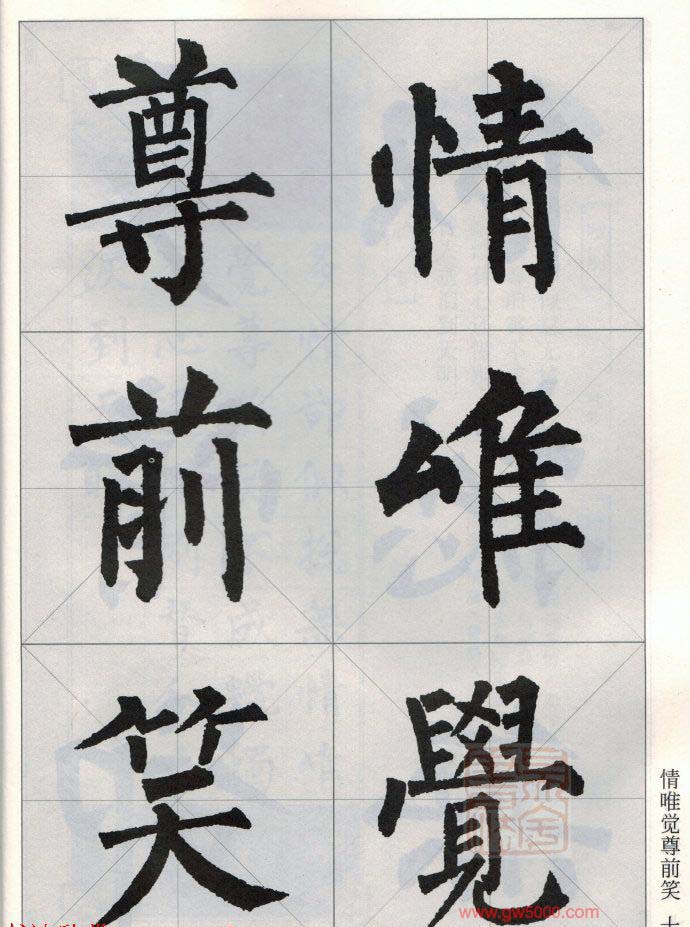 情唯覺
尊前笑
情唯觉尊前笑
www.gw5000.com